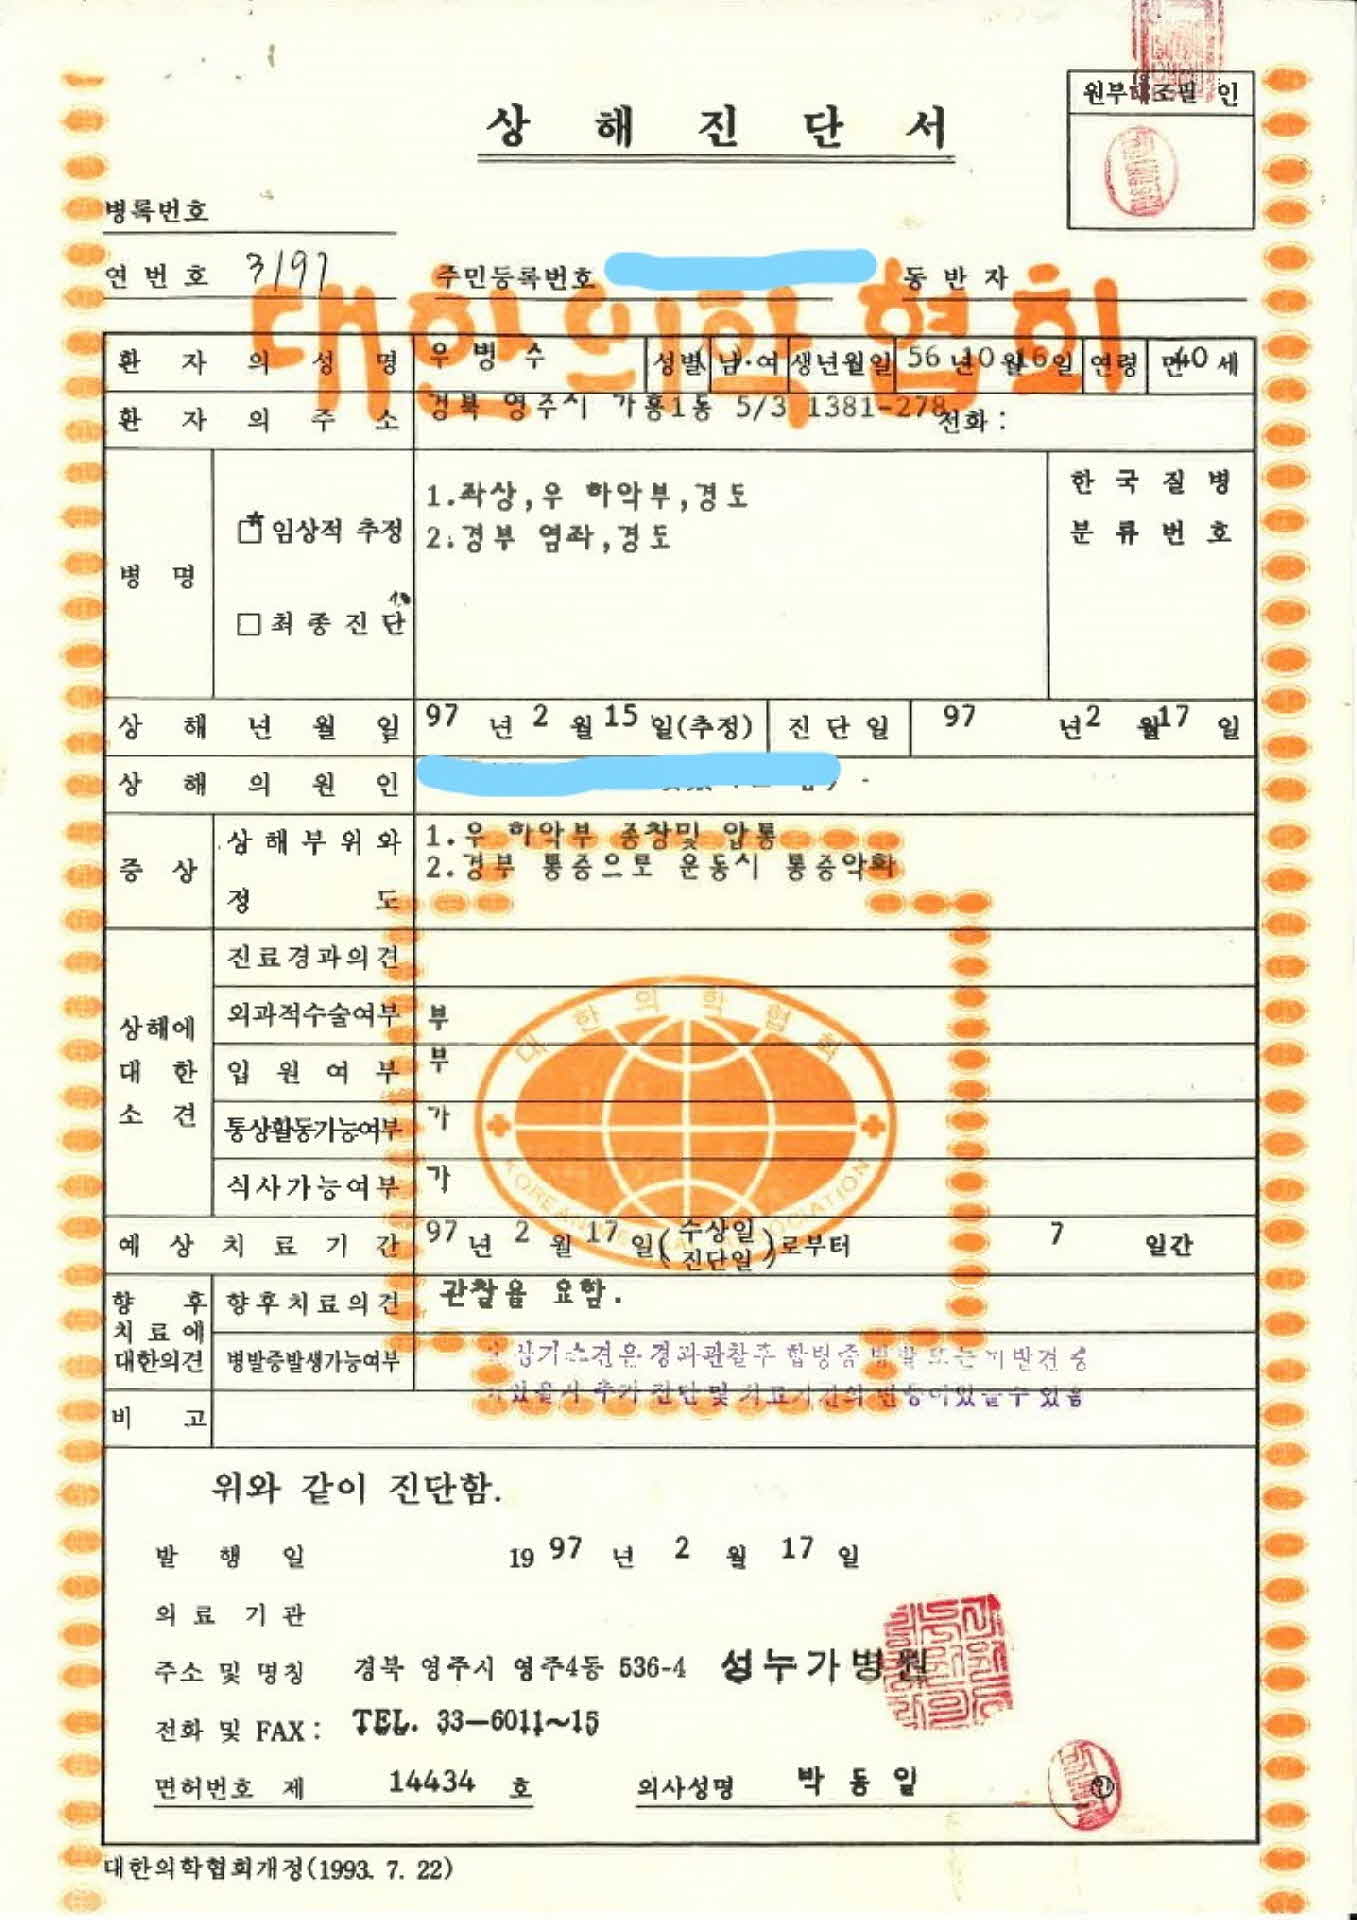 상 해 진 단 서
원부대조필 인
병록번호
연 번 호 3197 주민등록번호 동 반 자
대한의학협회
환 자 의 성 명 우 병 수 성별 남·여 생년월일 56 년 10 월 16 일 연령 만 40 세
환 자 의 주 소 경북 영주시 가흥1동 5/3 1381-278 전화 :
병 명
□ 임상적 추정
□ 최 종 진 단
1.좌상,우 하악부,경도
2.경부 염좌,경도
한 국 질 병
분 류 번 호
상 해 년 월 일 97 년 2 월 15 일(추정) 진 단 일 97 년 2 월 17 일
상 해 의 원 인
증 상
상 해 부 위 와
정 도
1.우 하악부 종창및 압통
2.경부 통증으로 운동시 통증악화
상해에
대 한
소 견
진료경과의견
외과적수술여부 부
입 원 여 부 부
통상활동가능여부 가
식사가능여부 가
대 한 의 학 협 회
KOREAN MEDICAL ASSOCIATION
예 상 치 료 기 간 97 년 2 월 17 일(수상일 진단일)로부터 7 일간
향 후
치 료 에
대한의견
향후치료의견 관찰을 요함.
병발증발생가능여부
상기소견은 경과관찰후 합병증 병발 또는 미발견 증
추가 진단 및 치료기간의 변동이있을수 있음
비 고
위와 같이 진단함.
발 행 일 19 97 년 2 월 17 일
의 료 기 관
주소 및 명칭 경북 영주시 영주4동 536-4 성누가병원
전화 및 FAX : TEL. 33-6011~15
면허번호 제 14434 호 의사성명 박 동 일 인
대한의학협회개정(1993. 7. 22)